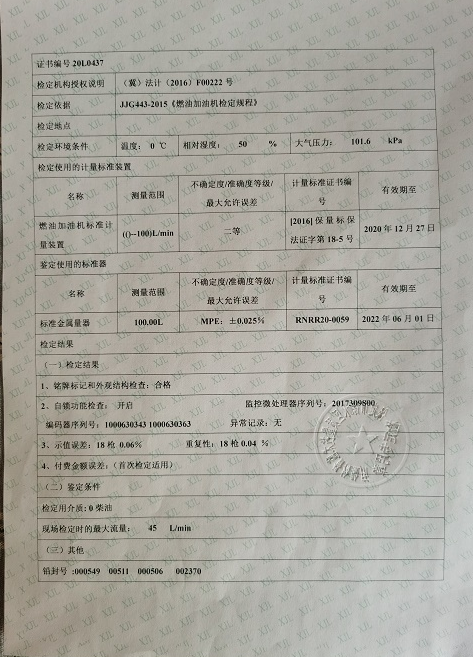 证书编号 20L0437
检定机构授权说明 （冀）法计（2016）F00222 号
检定依据 JJG443-2015《燃油加油机检定规程》
检定地点
检定环境条件 温度： 0 ℃ 相对湿度： 50 % 大气压力： 101.6 kPa
检定使用的计量标准装置
名称 测量范围 不确定度/准确度等级/最大允许误差 计量标准证书编号 有效期至
燃油加油机标准计量装置 (()--100)L/min 二等 [2016]保量标保法证字第 18-5 号 2020 年 12 月 27 日
鉴定使用的标准器
名称 测量范围 不确定度/准确度等级/最大允许误差 计量标准证书编号 有效期至
标准金属量器 100.00L MPE：±0.025% RNRR20-0059 2022 年 06 月 01 日
检定结果
（一）检定结果
1、铭牌标记和外观结构检查：合格
2、自锁功能检查： 开启 监控微处理器序列号：2017309800
编码器序列号：1000630343 1000630363 异常记录：无
3、示值误差：18 枪 0.06% 重复性：18 枪 0.04 %
4、付费金额误差：（首次检定适用）
（二）鉴定条件
检定用介质：0 柴油
现场检定时的最大流量： 45 L/min
（三）其他
铅封号 :000549 00511 000506 002370
XJL